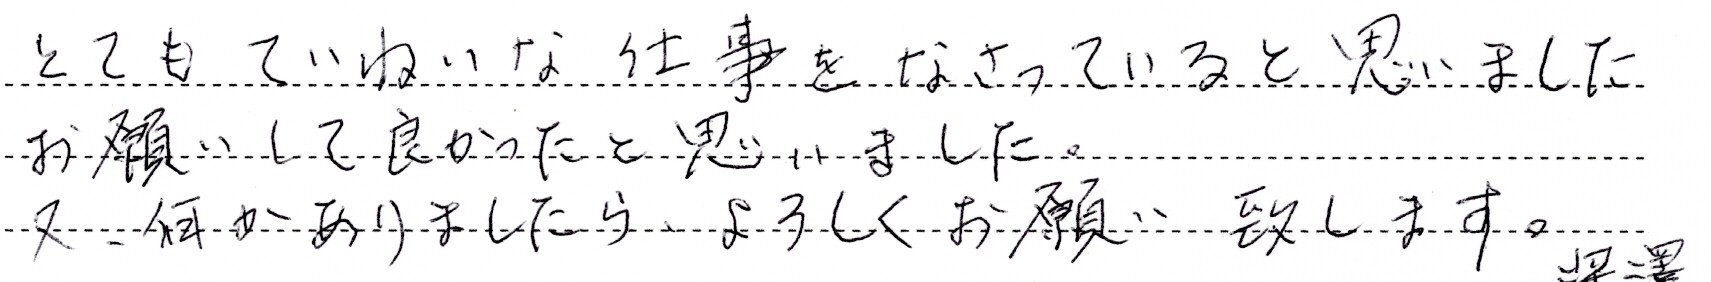 とてもていねいな仕事をなさっていると思いました
お願いして良かったと思いました。
又、何かありましたら、よろしくお願い致します。